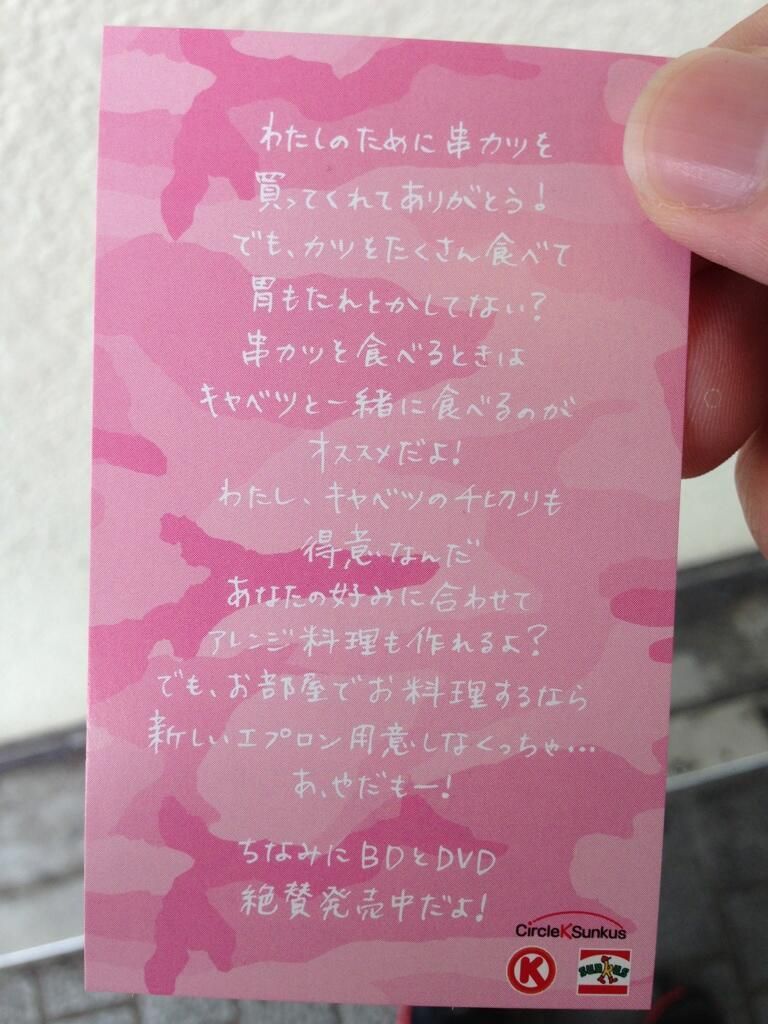 わたしのために串カツを
買ってくれてありがとう!
でも、カツをたくさん食べて
胃もたれとかしてない?
串カツを食べるときは
キャベツと一緒に食べるのが
オススメだよ!
わたし、キャベツの千切りも
得意なんだ
あなたの好みに合わせて
アレンジ料理も作れるよ?
でも、お部屋でお料理するなら
新しいエプロン用意しなくっちゃ…
あ、やだもー!
ちなみにBDとDVD
絶賛発売中だよ!
CircleKSunkus
K
SUNKUS